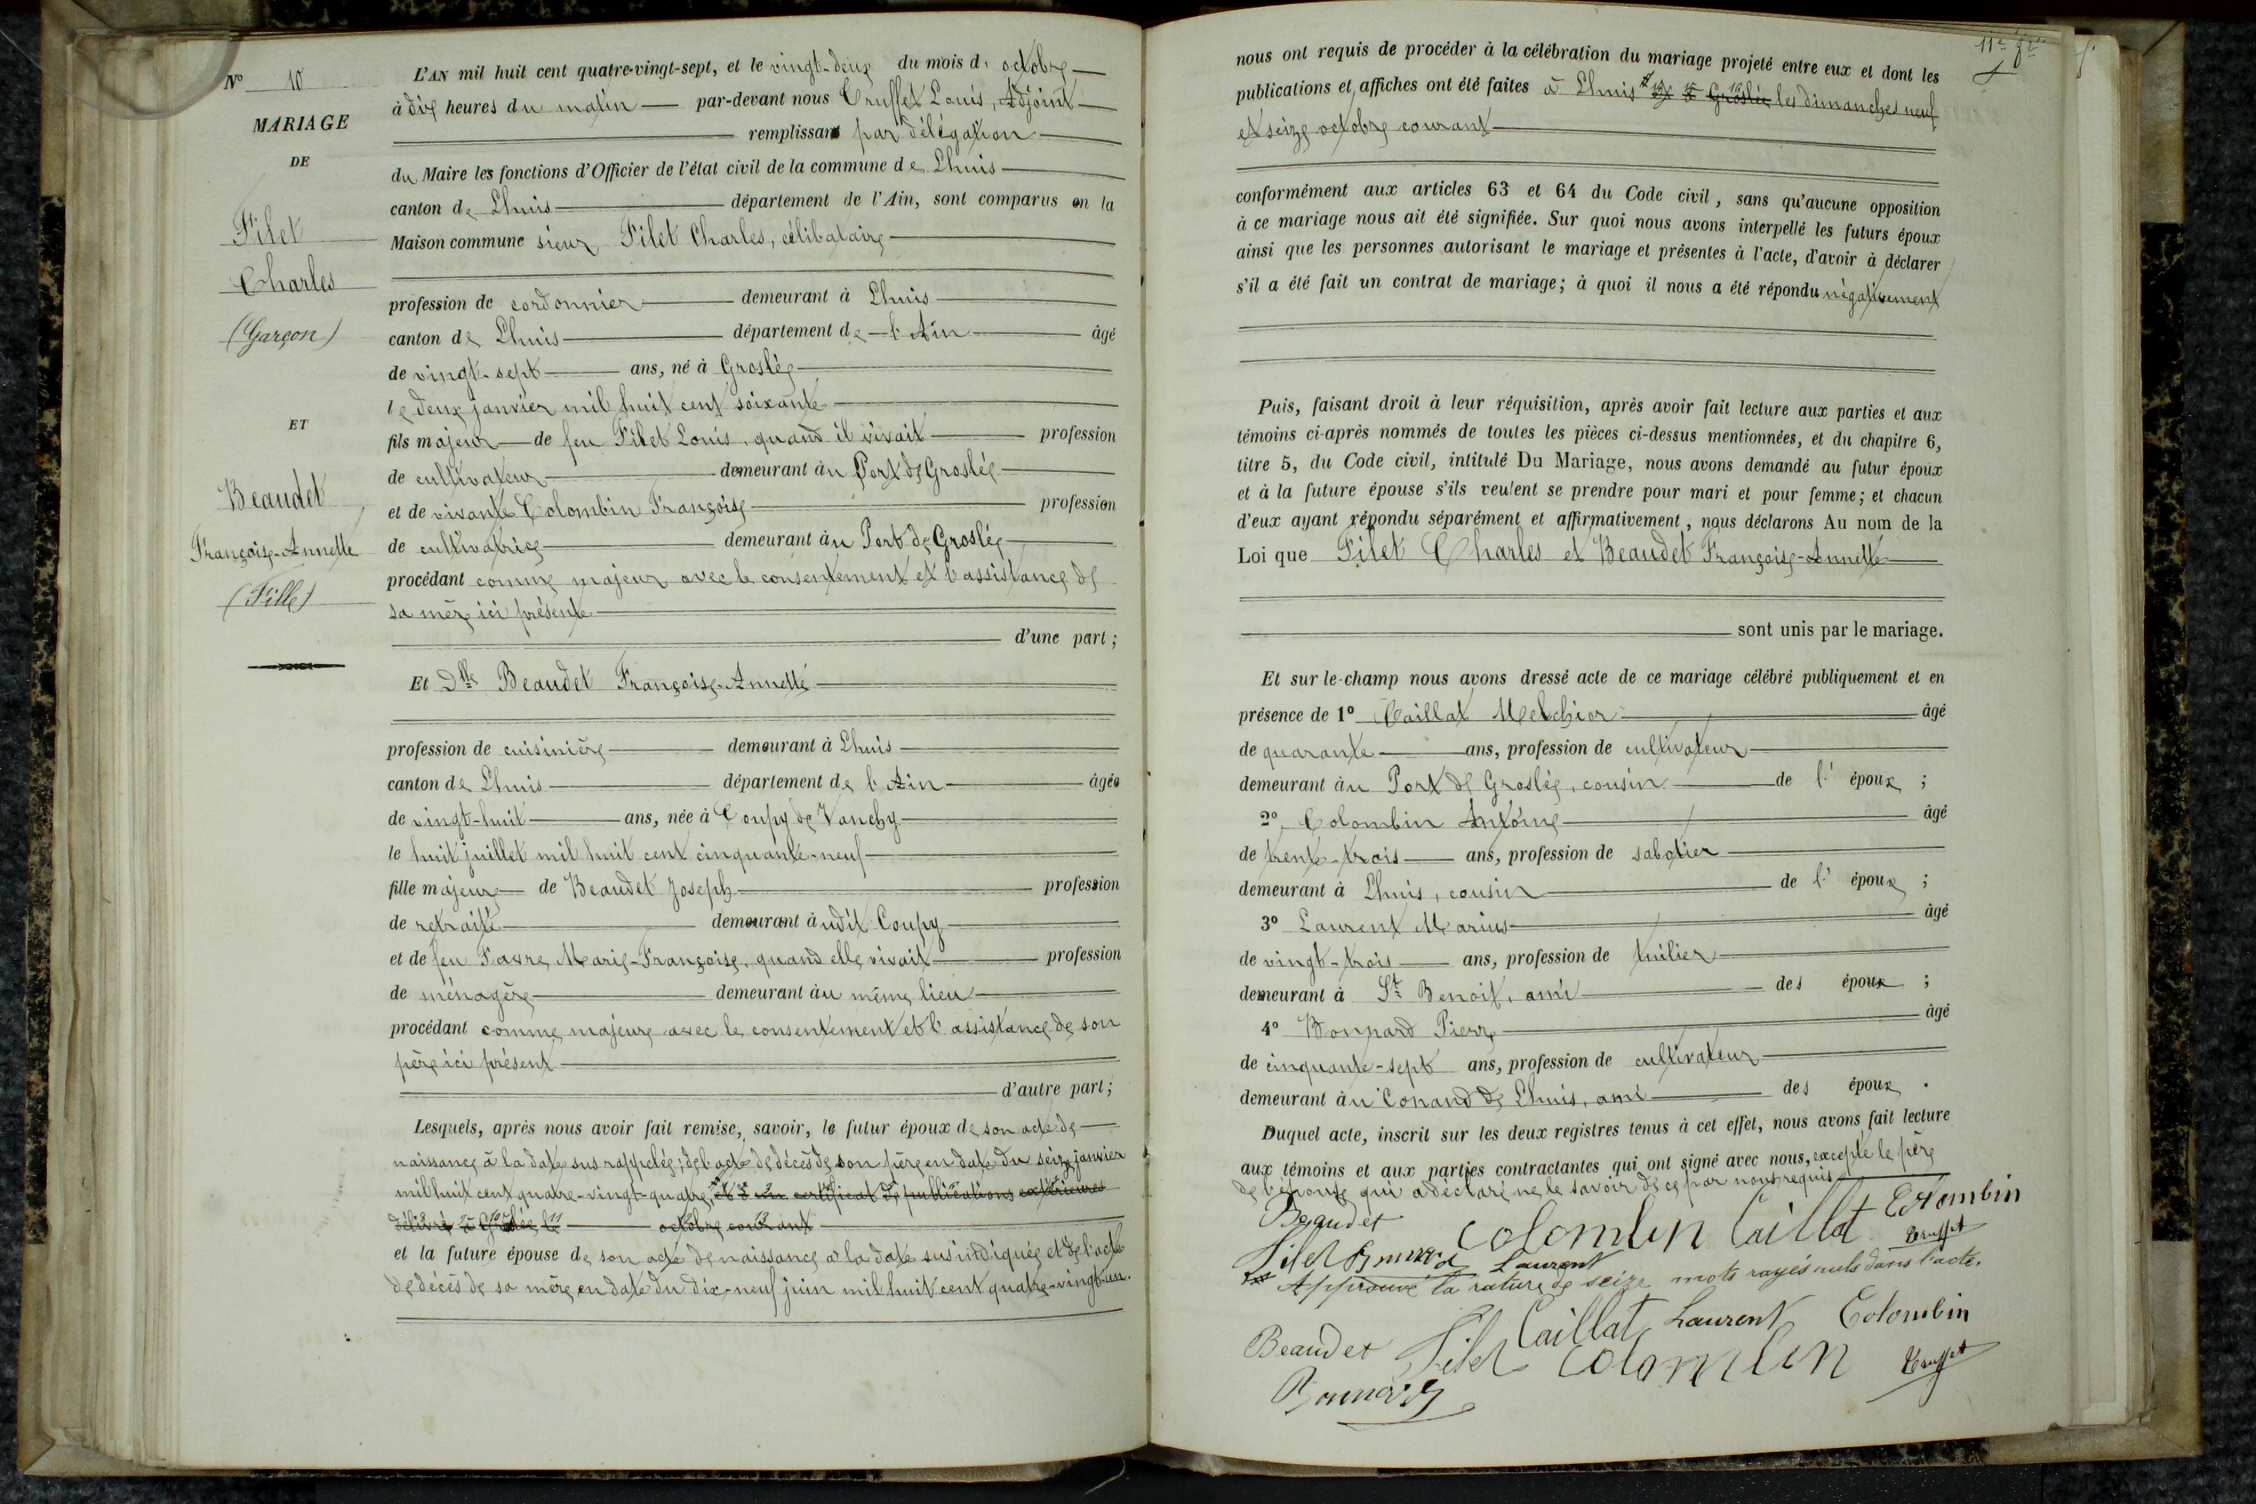 N° 10
MARIAGE
DE
Filet
Charles
(Garçon)
ET
Beaudet
Françoise-Annette
(Fille)
L'AN mil huit cent quatre-vingt-sept, et le vingt-deux du mois d' octobre
à dix heures du matin par-devant nous Truffet Louis, Adjoint
remplissant par délégation
du Maire les fonctions d'Officier de l'état civil de la commune de Lhuis
canton de Lhuis département de l'Ain, sont comparus en la
Maison commune sieur Filet Charles, célibataire
profession de cordonnier demeurant à Lhuis
canton de Lhuis département de l'Ain âgé
de vingt-sept ans, né à Groslée
le deux janvier mil huit cent soixante
fils majeur de feu Filet Louis, quand il vivait profession
de cultivateur demeurant àu Port de Groslée
et de vivante Colombin Françoise profession
de cultivatrice demeurant àu Port de Groslée
procédant comme majeur avec le consentement et l'assistance de
sa mère ici présente
d'une part ;
Et Dlle Beaudet Françoise-Annette
profession de cuisinière demeurant à Lhuis
canton de Lhuis département de l'Ain âgée
de vingt-huit ans, née à Coupy de Vanchy
le huit juillet mil huit cent cinquante-neuf
fille majeure de Beaudet Joseph profession
de retraité demeurant àudit Coupy
et de feu Favre Marie-Françoise, quand elle vivait profession
de ménagère demeurant àu même lieu
procédant comme majeure avec le consentement et l'assistance de son
père ici présent
d'autre part ;
Lesquels, après nous avoir fait remise, savoir, le futur époux de son acte de
naissance à la date sus rappelée ; de l'acte de décès de son père en date du seize janvier
mil huit cent quatre-vingt-quatre, et d'un certificat de publications extérieures
délivré à Groslée le octobre courant
et la future épouse de son acte de naissance à la date sus indiquée et de l'acte
de décès de sa mère en date du dix-neuf juin mil huit cent quatre-vingt-un.
11e
nous ont requis de procéder à la célébration du mariage projeté entre eux et dont les
publications et affiches ont été faites à Lhuis et à Groslée les dimanches neuf
et seize octobre courant
conformément aux articles 63 et 64 du Code civil, sans qu'aucune opposition
à ce mariage nous ait été signifiée. Sur quoi nous avons interpellé les futurs époux
ainsi que les personnes autorisant le mariage et présentes à l'acte, d'avoir à déclarer
s'il a été fait un contrat de mariage ; à quoi il nous a été répondu négativement
Puis, faisant droit à leur réquisition, après avoir fait lecture aux parties et aux
témoins ci-après nommés de toutes les pièces ci-dessus mentionnées, et du chapitre 6,
titre 5, du Code civil, intitulé Du Mariage, nous avons demandé au futur époux
et à la future épouse s'ils veulent se prendre pour mari et pour femme ; et chacun
d'eux ayant répondu séparément et affirmativement, nous déclarons Au nom de la
Loi que Filet Charles et Beaudet Françoise-Annette
sont unis par le mariage.
Et sur-le-champ nous avons dressé acte de ce mariage célébré publiquement et en
présence de 1° Caillat Melchior âgé
de quarante ans, profession de cultivateur
demeurant àu Port de Groslée, cousin de l' époux ;
2° Colombin Antoine âgé
de trente-trois ans, profession de sabotier
demeurant à Lhuis, cousin de l' époux ;
3° Laurent Marius âgé
de vingt-trois ans, profession de tuilier
demeurant à St Benoit, ami des époux ;
4° Bonnard Pierre âgé
de cinquante-sept ans, profession de cultivateur
demeurant àu Conand de Lhuis, ami des époux.
Duquel acte, inscrit sur les deux registres tenus à cet effet, nous avons fait lecture
aux témoins et aux parties contractantes qui ont signé avec nous, excepté le père
de l'épouse qui a déclaré ne le savoir de ce par nous requis
Beaudet Colombin Caillat Colombin
Filet Bonnard Laurent Truffet
Approuvé la rature de seize mots rayés nuls dans l'acte.
Beaudet Filet Caillat Laurent Colombin
Colombin Truffet
Bonnard